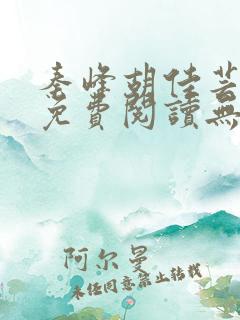 秦峰胡佳芸
免費閱讀無
阿尔曼
未经同意禁止转载